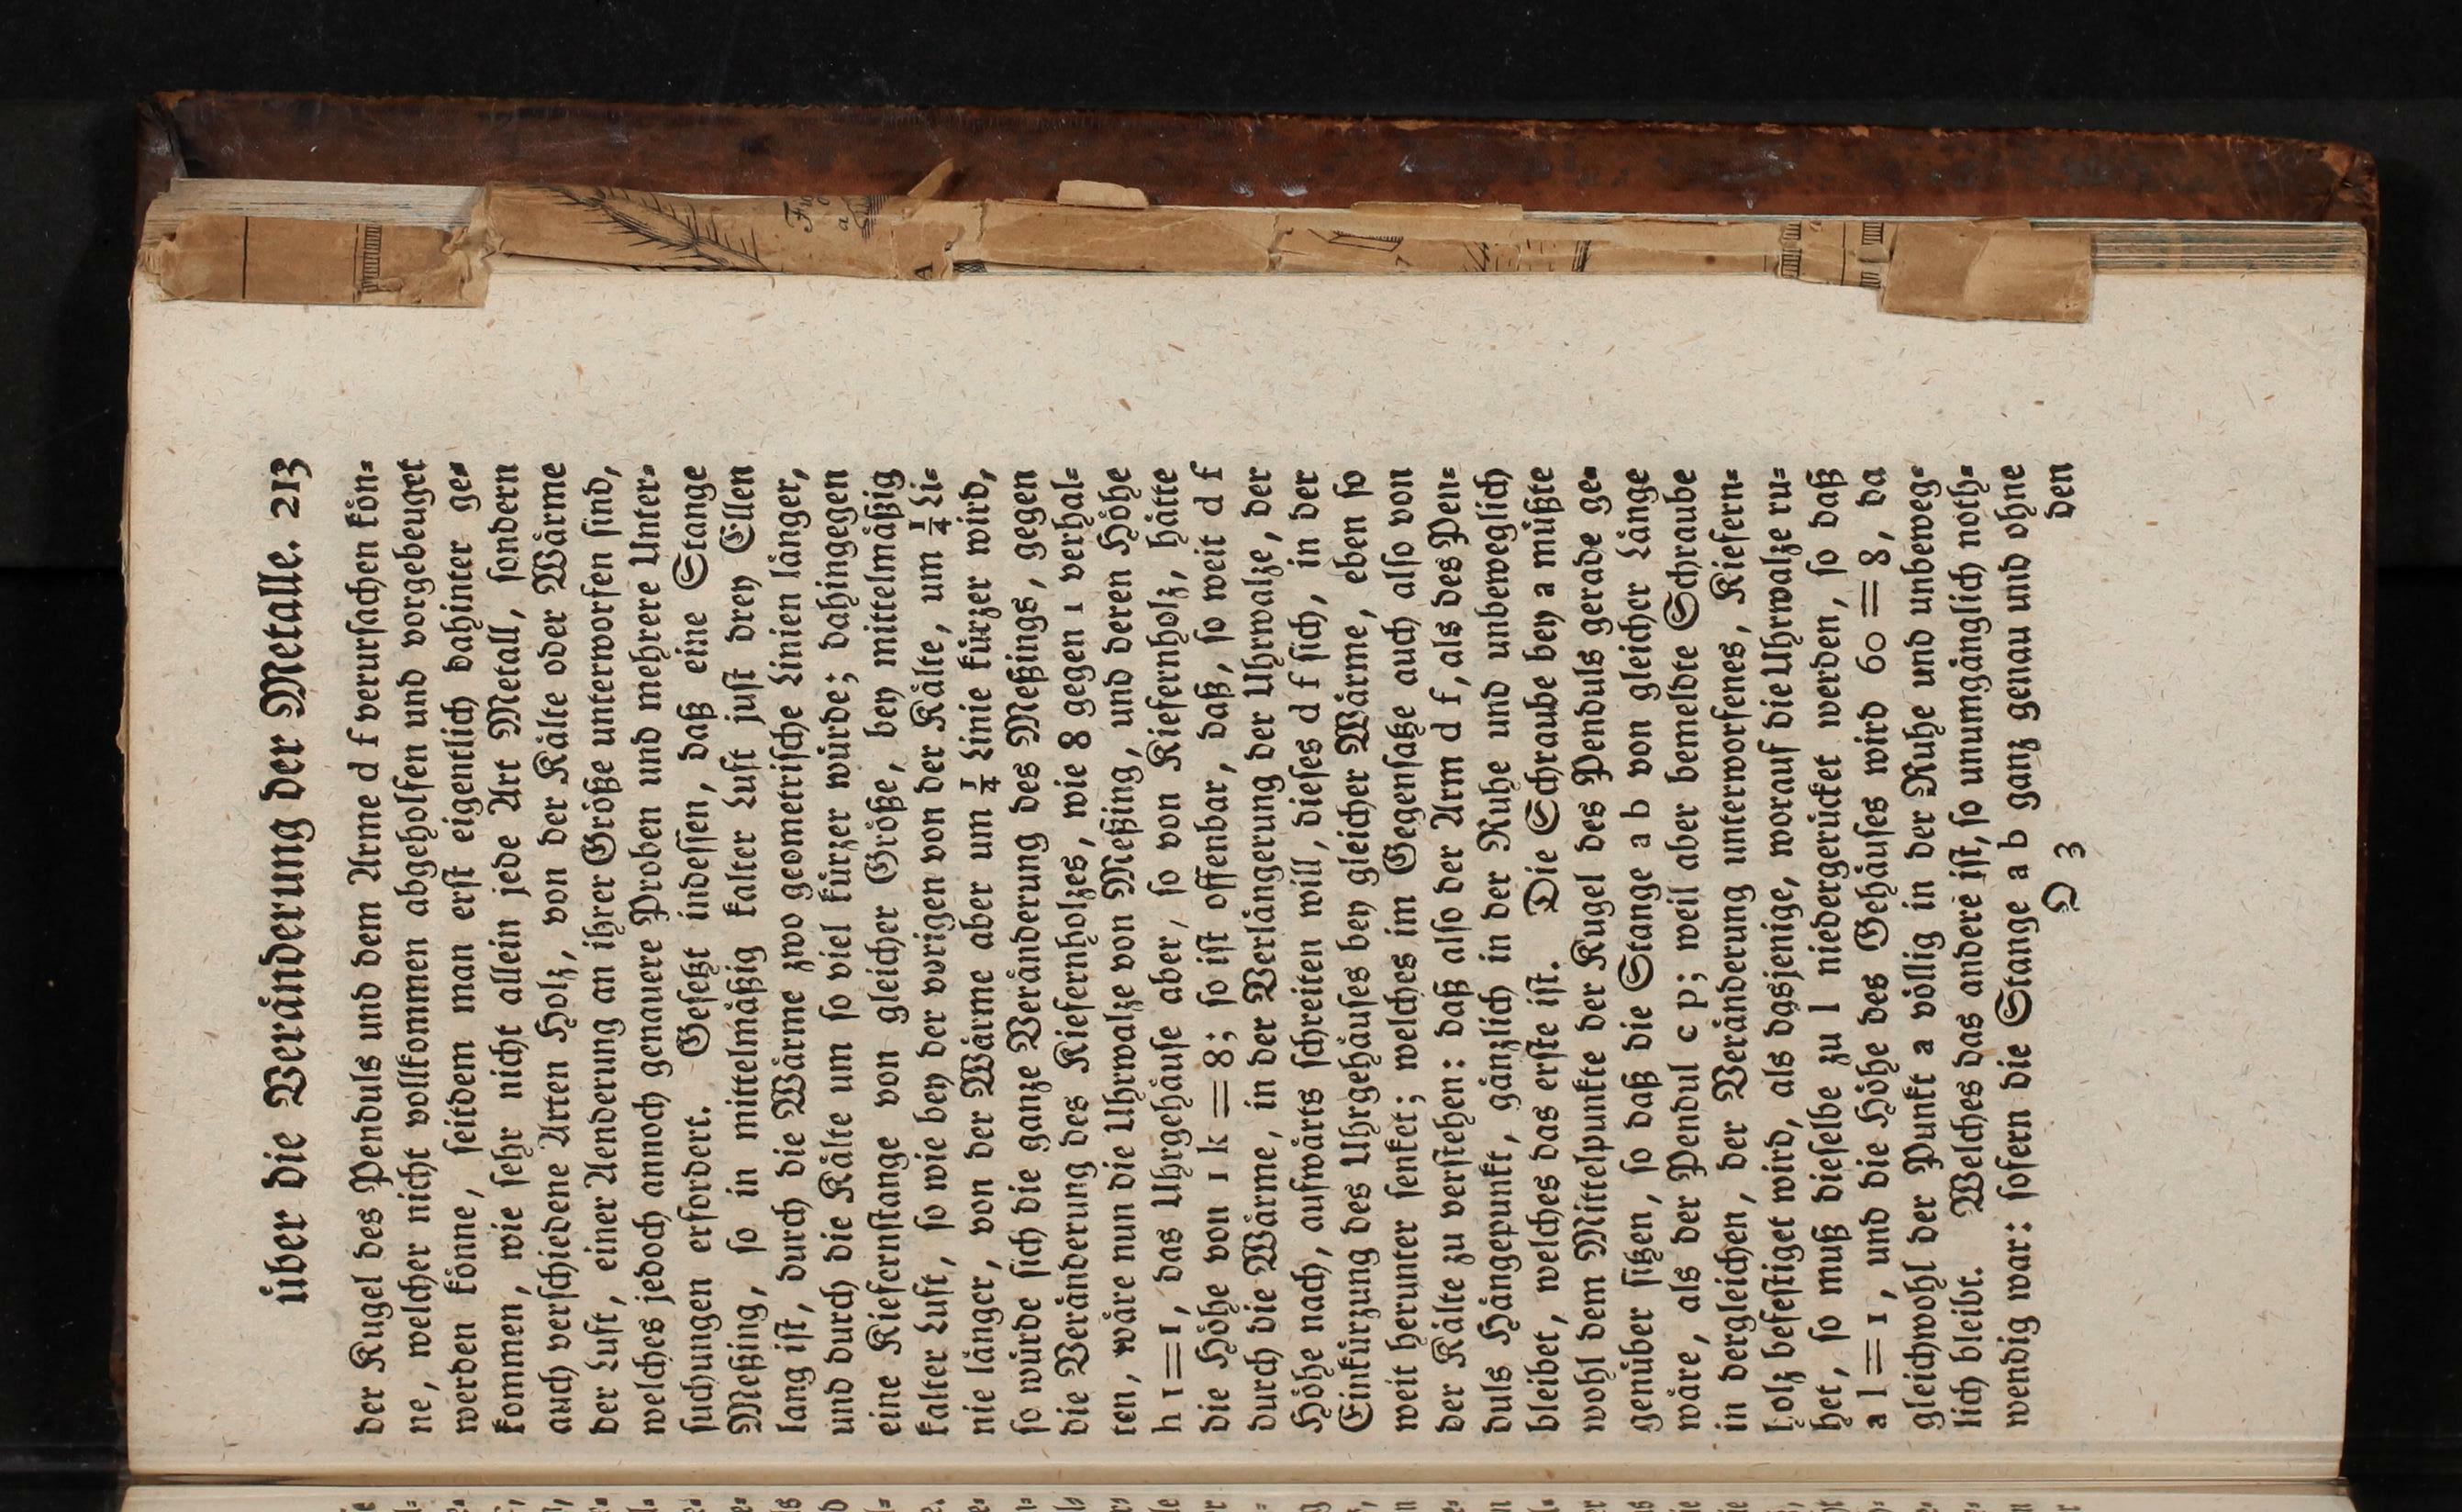 über die Veränderung der Metalle. 213
der Kugel des Penduls und dem Arme d f verursachen kön-
ne, welcher nicht vollkommen abgeholfen und vorgebeuget
werden könne, seitdem man erst eigentlich dahinter ge-
kommen, wie sehr nicht allein jede Art Metall, sondern
auch verschiedene Arten Holz, von der Kälte oder Wärme
der Luft, einer Aenderung an ihrer Größe unterworfen sind,
welches jedoch annoch genauere Proben und mehrere Unter-
suchungen erfordert. Gesetzt indessen, daß eine Stange
Meßing, so in mittelmäßig kalter Luft just drey Ellen
lang ist, durch die Wärme zwo geometrische Linien länger,
und durch die Kälte um so viel kürzer würde; dahingegen
eine Kiefernstange von gleicher Größe, bey mittelmäßig
kalter Luft, so wie bey der vorigen von der Kälte, um ¼ Li-
nie länger, von der Wärme aber um ¼ Linie kürzer wird,
so würde sich die ganze Veränderung des Meßings, gegen
die Veränderung des Kiefernholzes, wie 8 gegen 1 verhal-
ten, wäre nun die Uhrwalze von Meßing, und deren Höhe
h 1 = 1, das Uhrgehäuse aber, so von Kiefernholz, hätte
die Höhe von 1 k = 8; so ist offenbar, daß, so weit d f
durch die Wärme, in der Verlängerung der Uhrwalze, der
Höhe nach, aufwärts schreiten will, dieses d f sich, in der
Einkürzung des Uhrgehäuses bey gleicher Wärme, eben so
weit herunter senket; welches im Gegensatze auch also von
der Kälte zu verstehen: daß also der Arm d f, als des Pen-
duls Hängepunkt, gänzlich in der Ruhe und unbeweglich
bleibet, welches das erste ist. Die Schraube bey a müßte
wohl dem Mittelpunkte der Kugel des Penduls gerade ge-
genüber sitzen, so daß die Stange a b von gleicher Länge
wäre, als der Pendul c p; weil aber bemeldte Schraube
in dergleichen, der Veränderung unterworfenes, Kiefern-
holz befestiget wird, als dasjenige, worauf die Uhrwalze ru-
het, so muß dieselbe zu l niedergerücket werden, so daß
a l = 1, und die Höhe des Gehäuses wird 60 = 8, da
gleichwohl der Punkt a völlig in der Ruhe und unbeweg-
lich bleibt. Welches das andere ist, so unumgänglich noth-
wendig war: sofern die Stange a b ganz genau und ohne
O 3 den